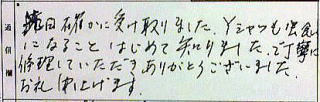 通信欄
先日確かに受け取りました、Yシャツも
になること はじめて知りました、ご丁寧に
修理していただき ありがとうございました、
お礼申し上げます。